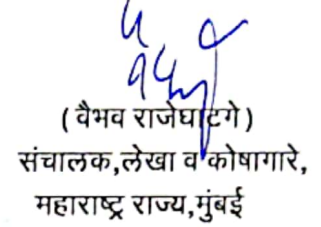 ( वैभव राजेघाटगे )
संचालक,लेखा व कोषागारे,
महाराष्ट्र राज्य,मुंबई